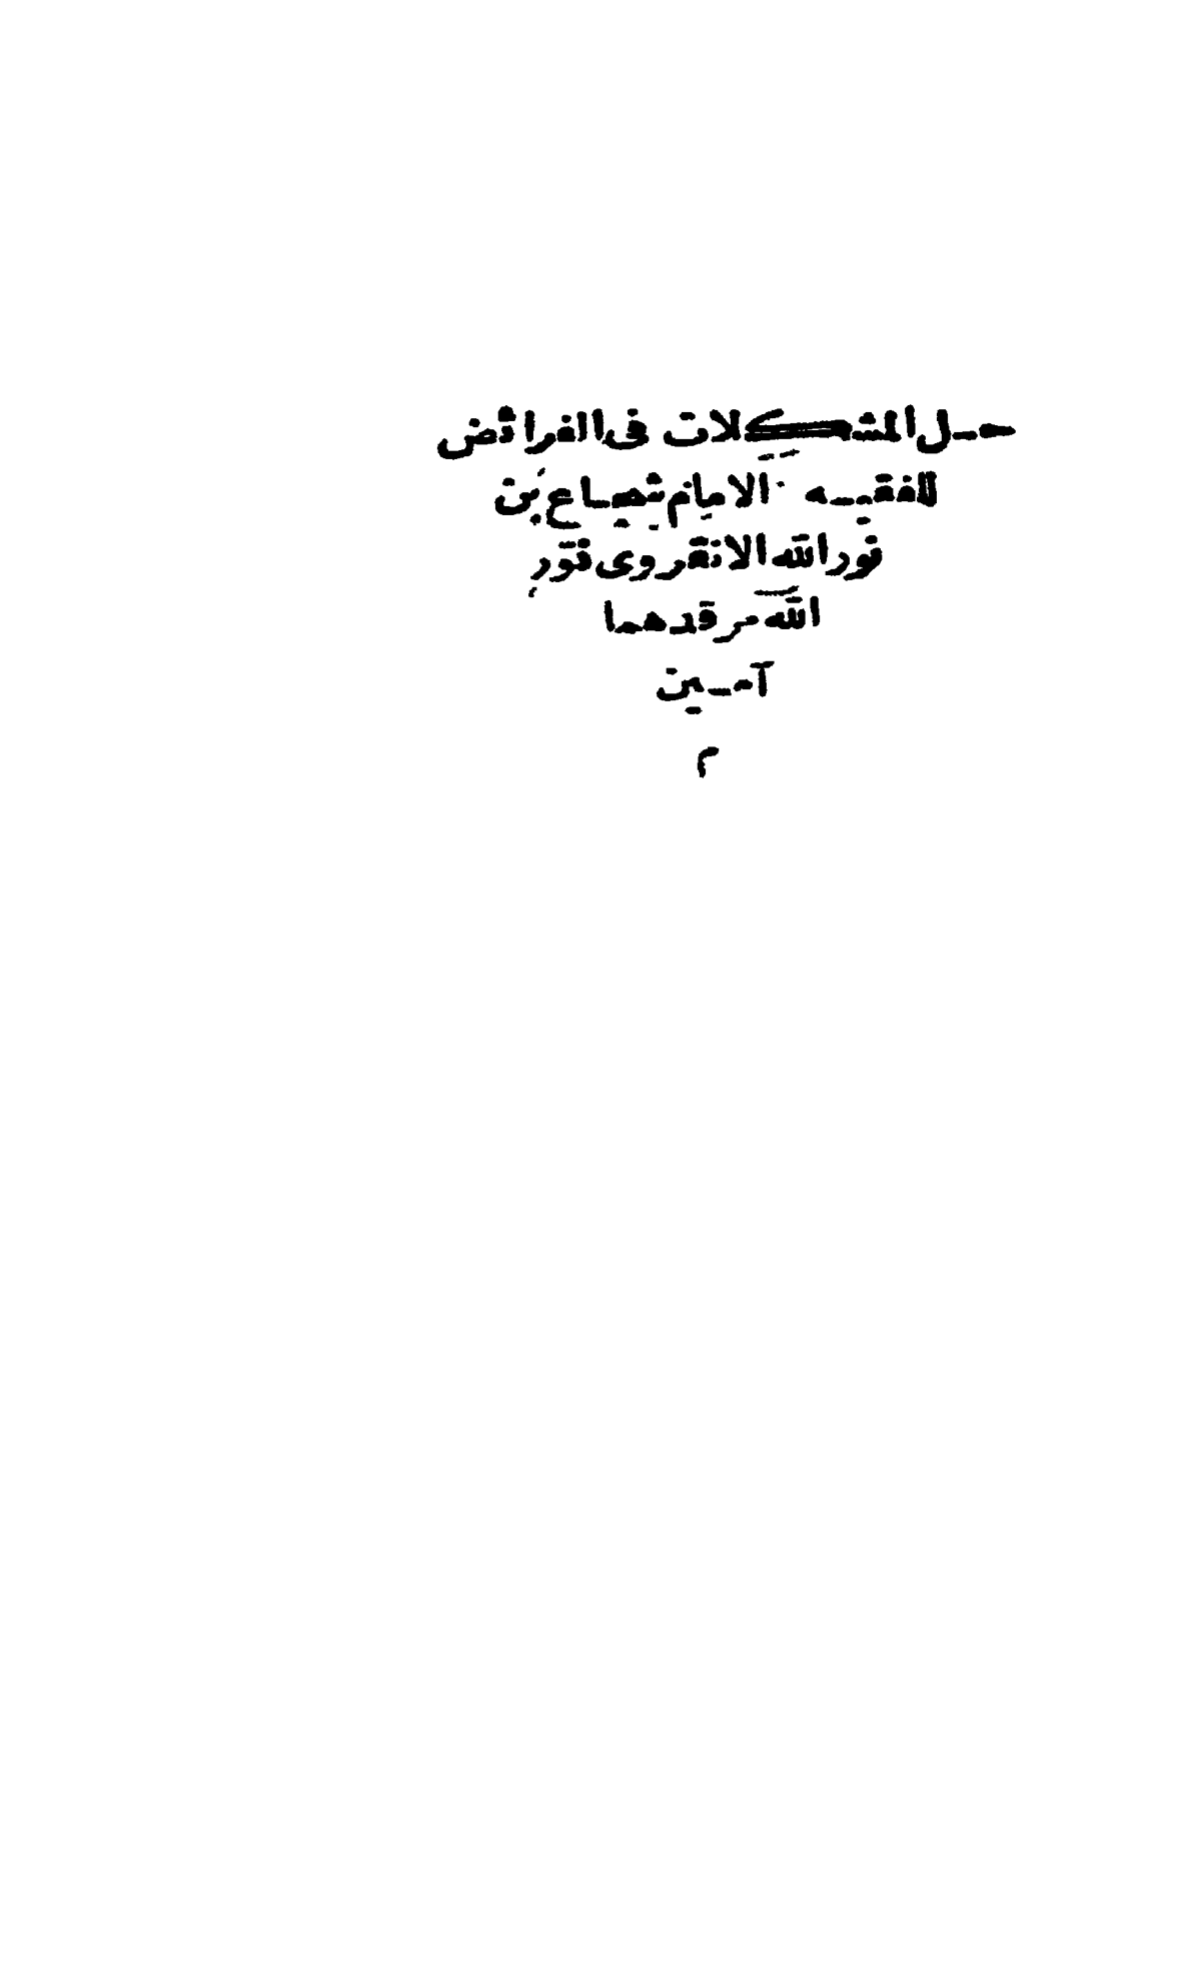 حل المشكلات فى الفرائض
للفقيه الامام شجاع بن
نور الله الانقروى نوّر
الله مرقدهما
آمين
م